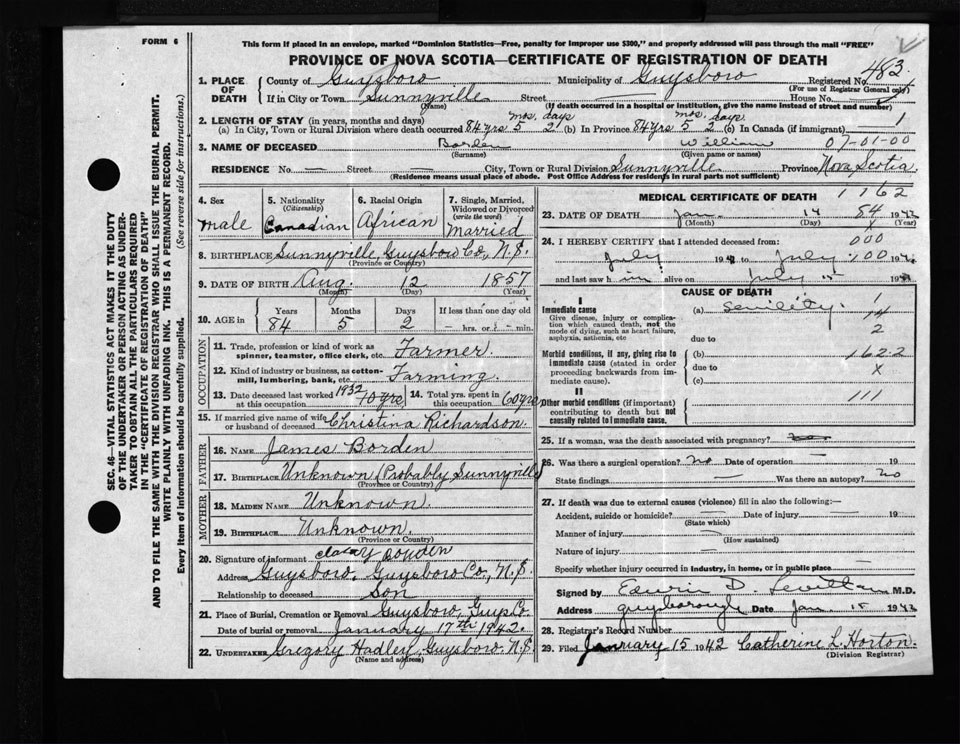 FORM 6
This form if placed in an envelope, marked "Dominion Statistics—Free, penalty for improper use $300," and properly addressed will pass through the mail "FREE"
PROVINCE OF NOVA SCOTIA—CERTIFICATE OF REGISTRATION OF DEATH
1. PLACE OF DEATH County of Guysboro Municipality of Guysboro Registered No. 483
(For use of Registrar General only)
If in City or Town Sunnyville Street House No.
(Name) (If death occurred in a hospital or institution, give the name instead of street and number)
2. LENGTH OF STAY (in years, months and days) mos. days mos. days 1
(a) In City, Town or Rural Division where death occurred 84 yrs 5 2 (b) In Province 84 yrs 5 2 (c) In Canada (if immigrant)
3. NAME OF DECEASED Borden William 07-01-00
(Surname) (Given name or names)
RESIDENCE No. — Street — City, Town or Rural Division Sunnyville Province Nova Scotia
(Residence means usual place of abode. Post Office Address for residents in rural parts not sufficient)
4. Sex
male
5. Nationality
(Citizenship)
Canadian
6. Racial Origin
African
7. Single, Married, Widowed or Divorced
(write the word)
Married
8. BIRTHPLACE Sunnyville, Guysboro Co., N.S.
(Province or Country)
9. DATE OF BIRTH Aug. 12 1857
(Month) (Day) (Year)
10. AGE in Years Months Days If less than one day old
84 5 2 — hrs. or — min.
OCCUPATION
11. Trade, profession or kind of work as spinner, teamster, office clerk, etc. Farmer.
12. Kind of industry or business, as cotton-mill, lumbering, bank, etc. Farming.
13. Date deceased last worked at this occupation 1932 10 yrs 14. Total yrs. spent in this occupation 60 yrs
15. If married give name of wife or husband of deceased Christina Richardson.
FATHER
16. NAME James Borden
17. BIRTHPLACE Unknown (Probably Sunnyville)
(Province or Country)
MOTHER
18. MAIDEN NAME Unknown.
19. BIRTHPLACE Unknown.
(Province or Country)
20. Signature of informant Borden
Address Guysboro, Guysboro Co., N.S.
Relationship to deceased Son
21. Place of Burial, Cremation or Removal Guysboro, Guys Co.
Date of burial or removal January 17th 1942.
22. UNDERTAKER Gregory Hadley, Guysboro N.S.
(Name and address)
MEDICAL CERTIFICATE OF DEATH 1162
23. DATE OF DEATH Jan. 14 84 1942
(Month) (Day) (Year)
24. I HEREBY CERTIFY that I attended deceased from: 000
July 194 to July 100 194
and last saw him alive on July 15 194
CAUSE OF DEATH
I
Immediate cause
Give disease, injury or complication which caused death, not the mode of dying, such as heart failure, asphyxia, asthenia, etc
(a) Senility. 1
14
2
due to
Morbid conditions, if any, giving rise to immediate cause (stated in order proceeding backwards from immediate cause).
(b) 162.2
due to X
(c)
II
Other morbid conditions (if important) contributing to death but not causally related to immediate cause.
111
25. If a woman, was the death associated with pregnancy?
26. Was there a surgical operation? no Date of operation — 19
State findings — Was there an autopsy? no
27. If death was due to external causes (violence) fill in also the following:—
Accident, suicide or homicide? — Date of injury — 19
(State which)
Manner of injury —
(How sustained)
Nature of injury —
Specify whether injury occurred in industry, in home, or in public place —
Signed by Edwin D. M.D.
Address guysborough Date Jan. 15 1942
28. Registrar's Record Number
29. Filed January 15 1942 Catherine L. Horton.
(Division Registrar)
SEC. 46—VITAL STATISTICS ACT MAKES IT THE DUTY
OF THE UNDERTAKER OR PERSON ACTING AS UNDER-
TAKER TO OBTAIN ALL THE PARTICULARS REQUIRED
IN THE "CERTIFICATE OF REGISTRATION OF DEATH"
AND TO FILE THE SAME WITH THE DIVISION REGISTRAR WHO SHALL ISSUE THE BURIAL PERMIT.
WRITE PLAINLY WITH UNFADING INK. THIS IS A PERMANENT RECORD.
Every item of information should be carefully supplied. (See reverse side for instructions.)